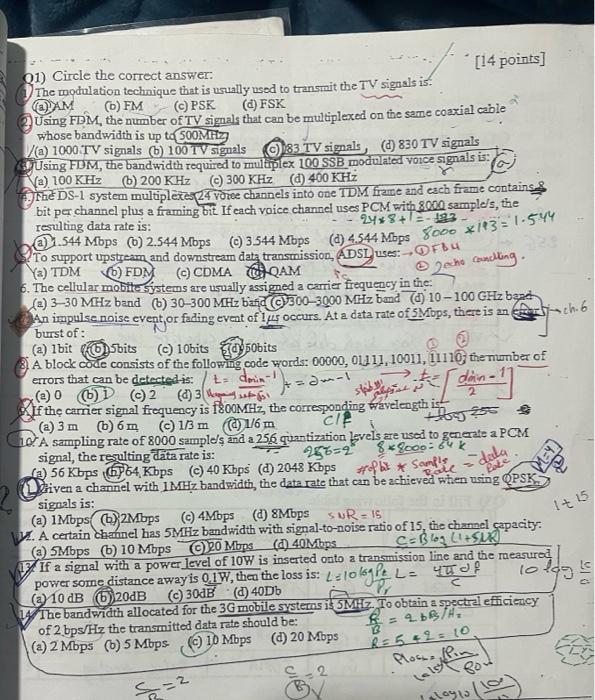 [14 points]
Q1) Circle the correct answer:
1. The modulation technique that is usually used to transmit the TV signals is:
(a) AM (b) FM (c) PSK (d) FSK
2. Using FDM, the number of TV signals that can be multiplexed on the same coaxial cable
whose bandwidth is up to 500MHz
(a) 1000 TV signals (b) 100 TV signals (c) 83 TV signals (d) 830 TV signals
Using FDM, the bandwidth required to multiplex 100 SSB modulated voice signals is: (a)
(a) 100 KHz (b) 200 KHz (c) 300 KHz (d) 400 KHz
4. The DS-1 system multiplexes 24 voice channels into one TDM frame and each frame contains 8
bit per channel plus a framing bit. If each voice channel uses PCM with 8000 sample/s, the
resulting data rate is: 24*8+1=193 8000 x193=1.544
(a) 1.544 Mbps (b) 2.544 Mbps (c) 3.544 Mbps (d) 4.544 Mbps
To support upstream and downstream data transmission, ADSL uses: → ①
(a) TDM (b) FDM (c) CDMA (d) QAM ② echo
6. The cellular mobile systems are usually assigned a carrier frequency in the:
(a) 3–30 MHz band (b) 30–300 MHz band (c) 300–3000 MHz band (d) 10 – 100 GHz band
An impulse noise event or fading event of 1µs occurs. At a data rate of 5Mbps, there is an error → ch.6
burst of:
(a) 1bit (b) 5bits (c) 10bits (d) 50bits
8. A block code consists of the following code words: 00000, 01111, 10011, 11110; the number of
errors that can be detected is: t = dmin-1 → t = [dmin-1 / 2]
(a) 0 (b) 1 (c) 2 (d) 3
9. If the carrier signal frequency is 1800MHz, the corresponding wavelength is:
(a) 3 m (b) 6 m (c) 1/3 m (d) 1/6 m C/F
10. A sampling rate of 8000 sample/s and a 256 quantization levels are used to generate a PCM
signal, the resulting data rate is: 256=2⁸ 8*8000=64k
(a) 56 Kbps (b) 64 Kbps (c) 40 Kbps (d) 2048 Kbps # of bit * Sample Rate = data Rate
11. Given a channel with 1MHz bandwidth, the data rate that can be achieved when using QPSK
signals is: 1+15
(a) 1Mbps (b) 2Mbps (c) 4Mbps (d) 8Mbps SNR = 15
12. A certain channel has 5MHz bandwidth with signal-to-noise ratio of 15, the channel capacity:
(a) 5Mbps (b) 10 Mbps (c) 20 Mbps (d) 40Mbps C=B log (1+SNR)
13. If a signal with a power level of 10W is inserted onto a transmission line and the measured
power some distance away is 0.1W, then the loss is: L=10 log Pt/Pr L= 4πdf/C 10 log
(a) 10 dB (b) 20dB (c) 30dB (d) 40Db
14. The bandwidth allocated for the 3G mobile systems is 5MHz. To obtain a spectral efficiency
of 2 bps/Hz the transmitted data rate should be: R/B = 2 bB/Hz
(a) 2 Mbps (b) 5 Mbps (c) 10 Mbps (d) 20 Mbps R=5*2=10
C/B = 2 C/B = 2